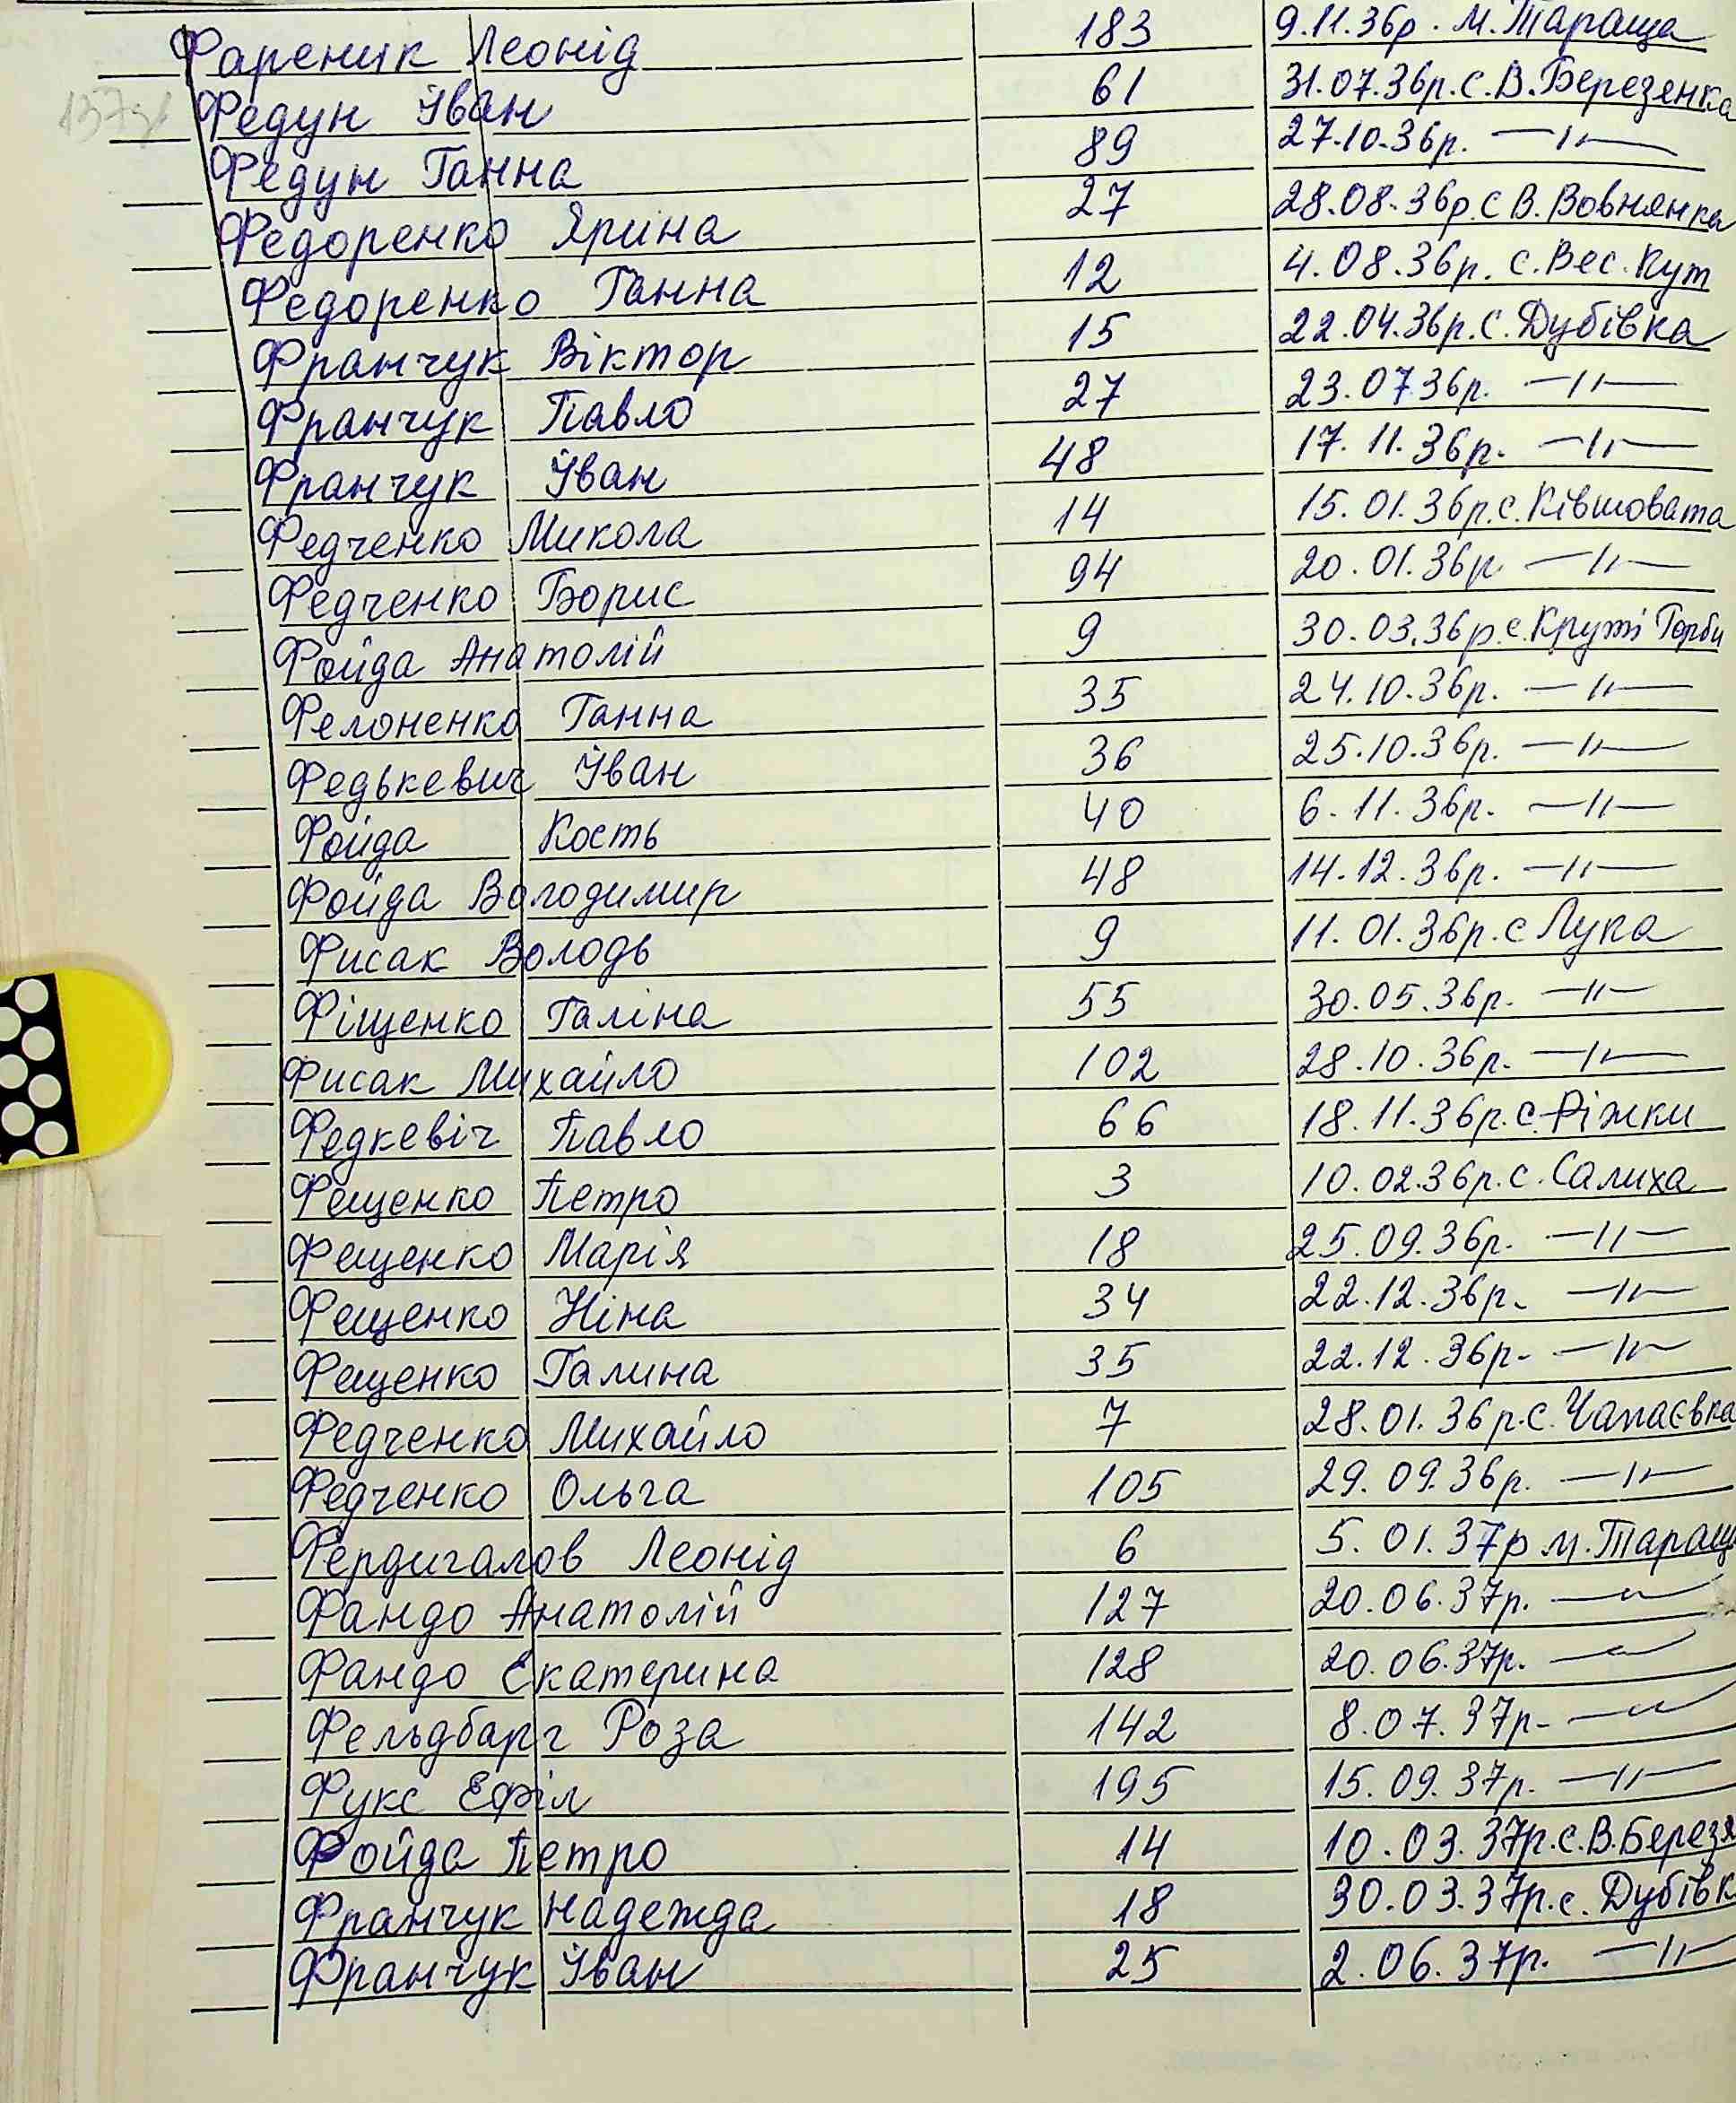 Фареник Леонід 183 9.11.36р. м. Тараща
Федун Іван 61 31.07.36р. с. В. Березянка
Федун Ганна 89 27.10.36р. —〃—
Федоренко Ярина 27 28.08.36р. с В. Вовнянка
Федоренко Ганна 12 4.08.36р. с. Вес. Кут
Франчук Віктор 15 22.04.36р. с. Дубівка
Франчук Павло 27 23.07.36р. —〃—
Франчук Іван 48 17.11.36р. —〃—
Федченко Микола 14 15.01.36р. с. Ківшовата
Федченко Борис 94 20.01.36р. —〃—
Фойда Анатолій 9 30.03.36р. с. Круті Горби
Фелоненко Ганна 35 24.10.36р. —〃—
Федькевич Іван 36 25.10.36р. —〃—
Фойда Кость 40 6.11.36р. —〃—
Фойда Володимир 48 14.12.36р. —〃—
Фисак Володь 9 11.01.36р. с Лука
Фіщенко Галіна 55 30.05.36р. —〃—
Фисак Михайло 102 28.10.36р. —〃—
Федкевіч Павло 66 18.11.36р. с. Ріжки
Фещенко Петро 3 10.02.36р. с. Салиха
Фещенко Марія 18 25.09.36р. —〃—
Фещенко Ніна 34 22.12.36р. —〃—
Фещенко Галина 35 22.12.36р. —〃—
Федченко Михайло 7 28.01.36р. с. Чапаєвка
Федченко Ольга 105 29.09.36р. —〃—
Фердигалов Леонід 6 5.01.37р м. Таращ
Фандо Анатолій 127 20.06.37р. —〃—
Фандо Екатерина 128 20.06.37р. —〃—
Фельдбарг Роза 142 8.07.37р. —〃—
Фукс Ефіл 195 15.09.37р. —〃—
Фойда Петро 14 10.03.37р. с. В. Березя
Франчук Надежда 18 30.03.37р. с. Дубівк
Франчук Іван 25 2.06.37р. —〃—